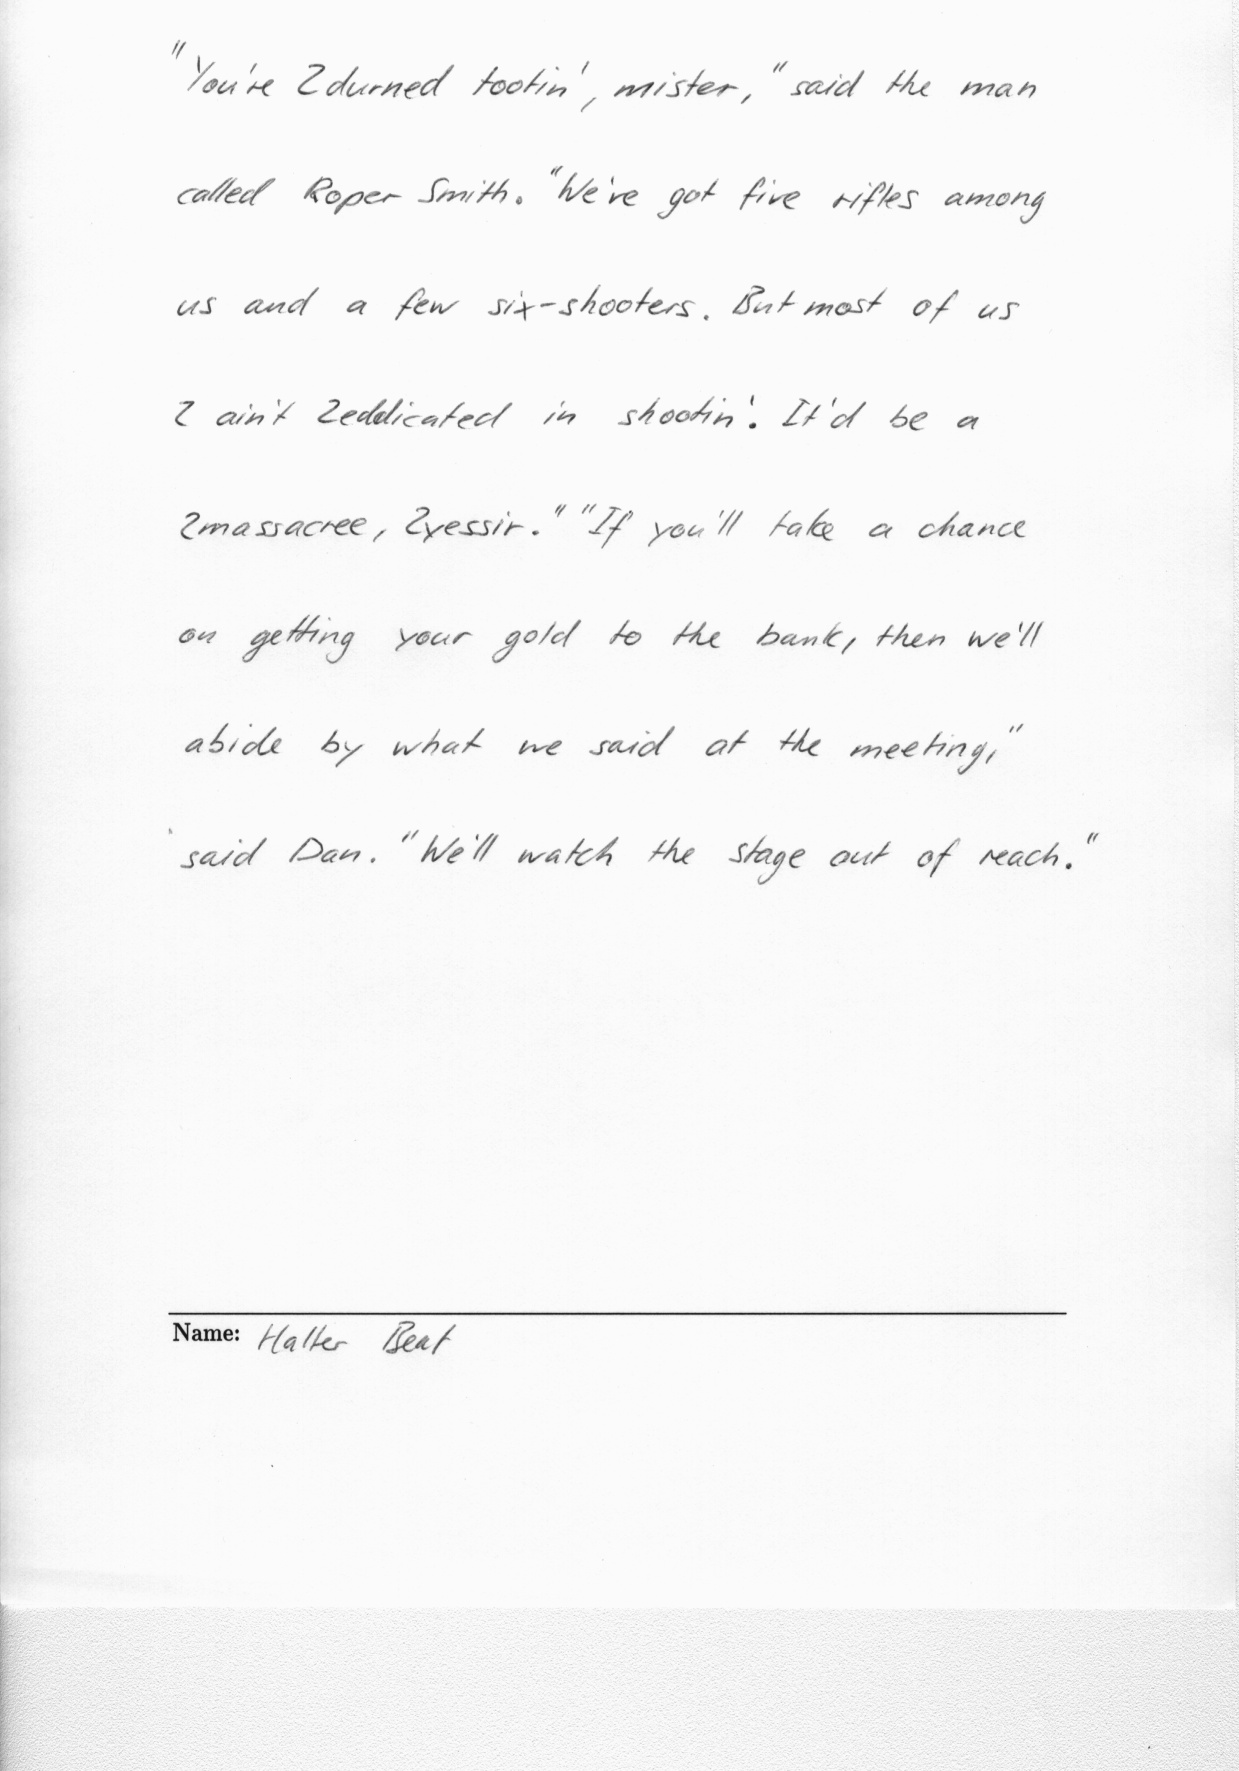 "You're 2durned tootin', mister," said the man
called Roper Smith. "We've got five rifles among
us and a few six-shooters. But most of us
2 ain't 2eddicated in shootin'. It'd be a
2massacree, 2yessir." "If you'll take a chance
on getting your gold to the bank, then we'll
abide by what we said at the meeting,"
said Dan. "We'll watch the stage out of reach."
Name: Halter Beat